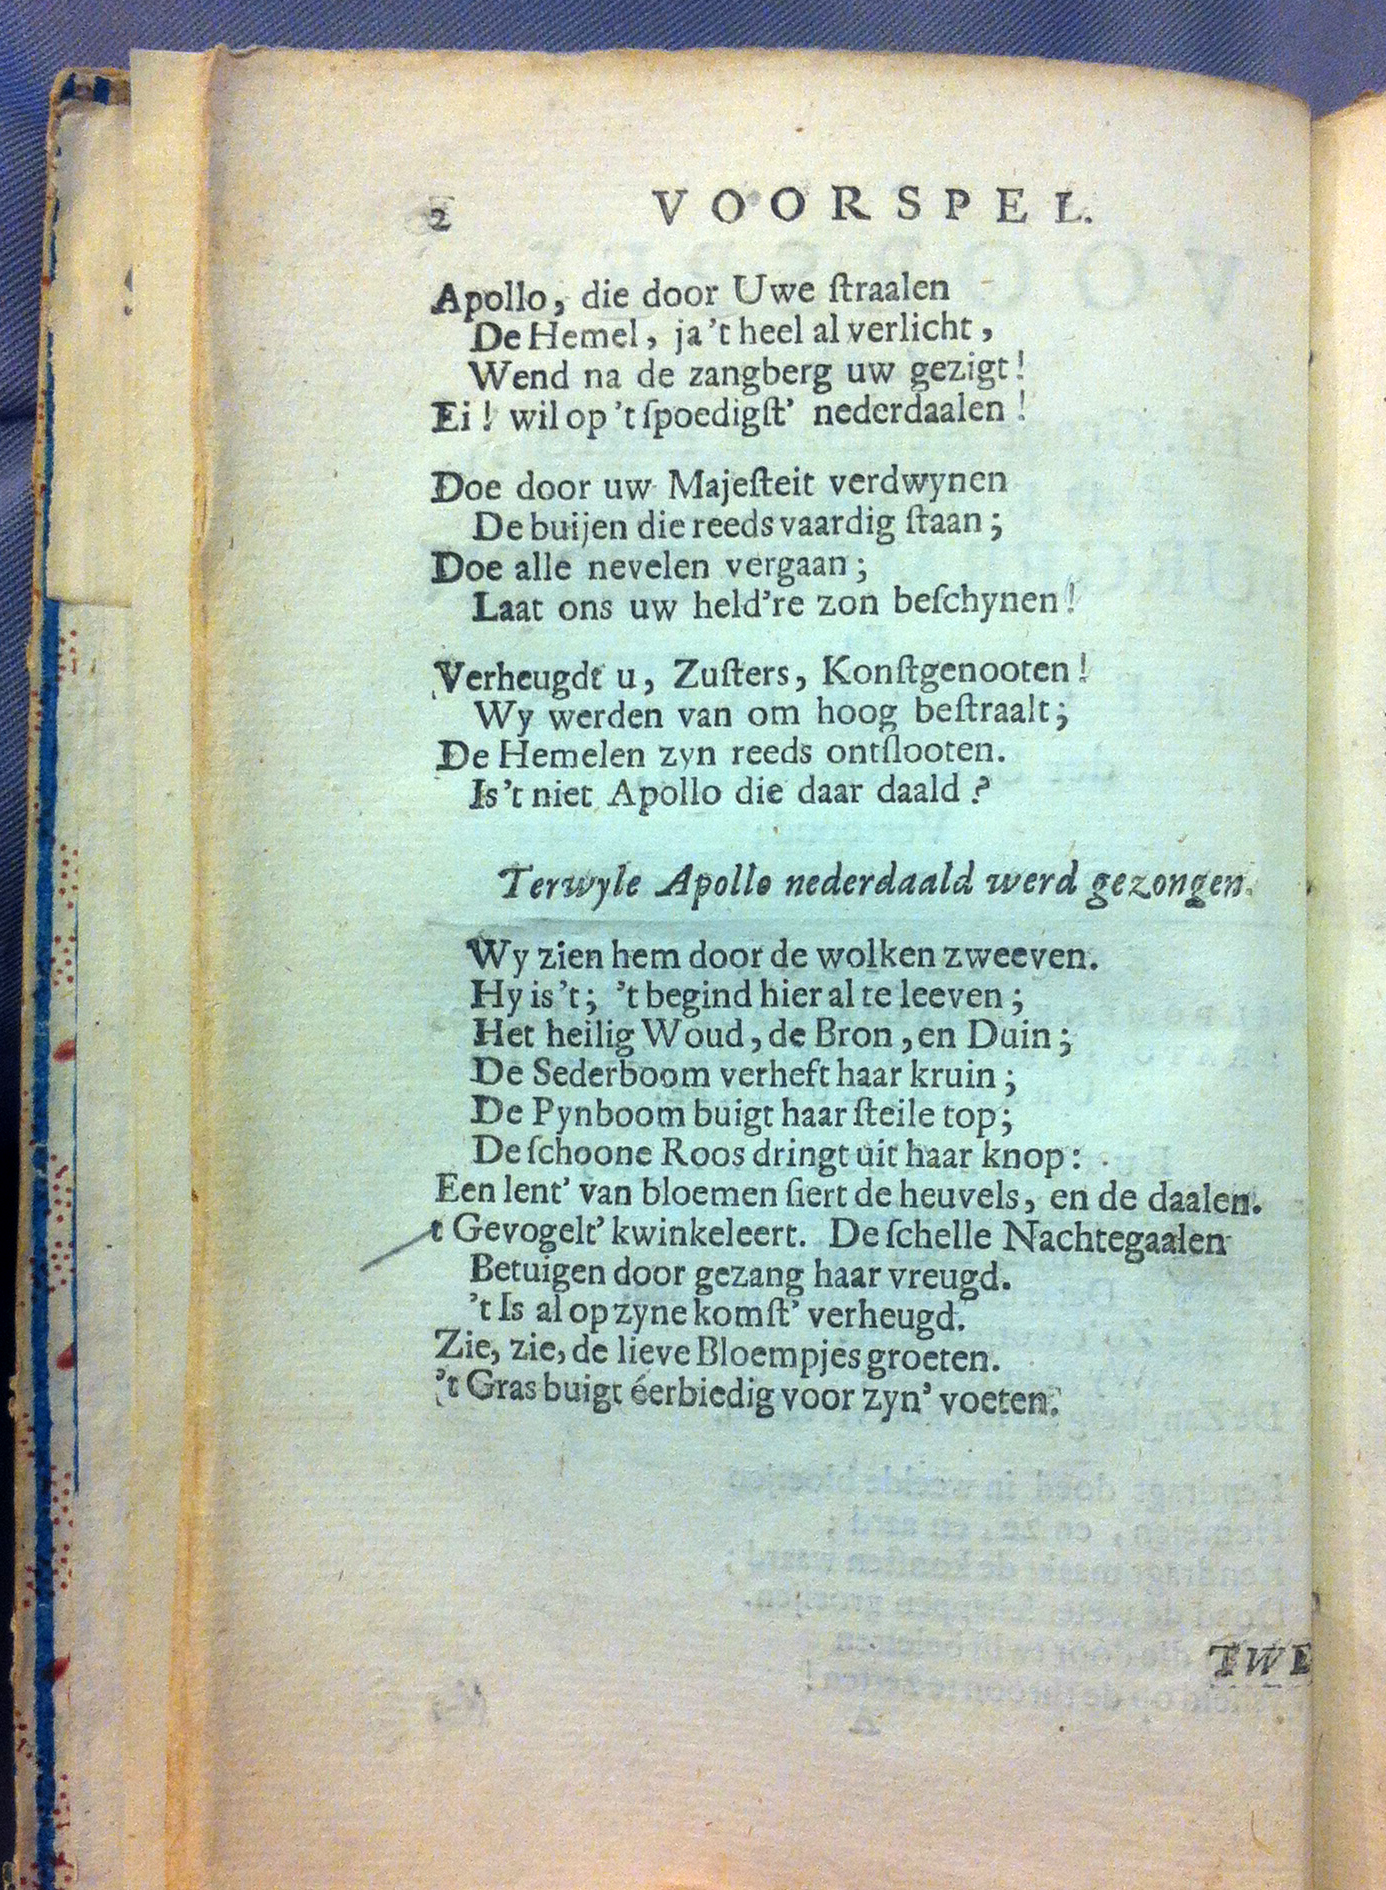 2 VOORSPEL.
Apollo, die door Uwe ſtraalen
De Hemel, ja 't heel al verlicht,
Wend na de zangberg uw gezigt!
Ei! wil op 't ſpoedigſt' nederdaalen!
Doe door uw Majeſteit verdwynen
De buijen die reeds vaardig ſtaan;
Doe alle nevelen vergaan;
Laat ons uw held're zon beſchynen!
Verheugdt u, Zuſters, Konſtgenooten!
Wy werden van om hoog beſtraalt;
De Hemelen zyn reeds ontſlooten.
Is 't niet Apollo die daar daald?
Terwyle Apollo nederdaald werd gezongen.
Wy zien hem door de wolken zweeven.
Hy is 't; 't begind hier al te leeven;
Het heilig Woud, de Bron, en Duin;
De Sederboom verheft haar kruin;
De Pynboom buigt haar ſteile top;
De ſchoone Roos dringt uit haar knop:
Een lent' van bloemen ſiert de heuvels, en de daalen.
t Gevogelt' kwinkeleert. De ſchelle Nachtegaalen
Betuigen door gezang haar vreugd.
't Is al op zyne komſt' verheugd.
Zie, zie, de lieve Bloempjes groeten.
't Gras buigt éerbiedig voor zyn' voeten.
TWE